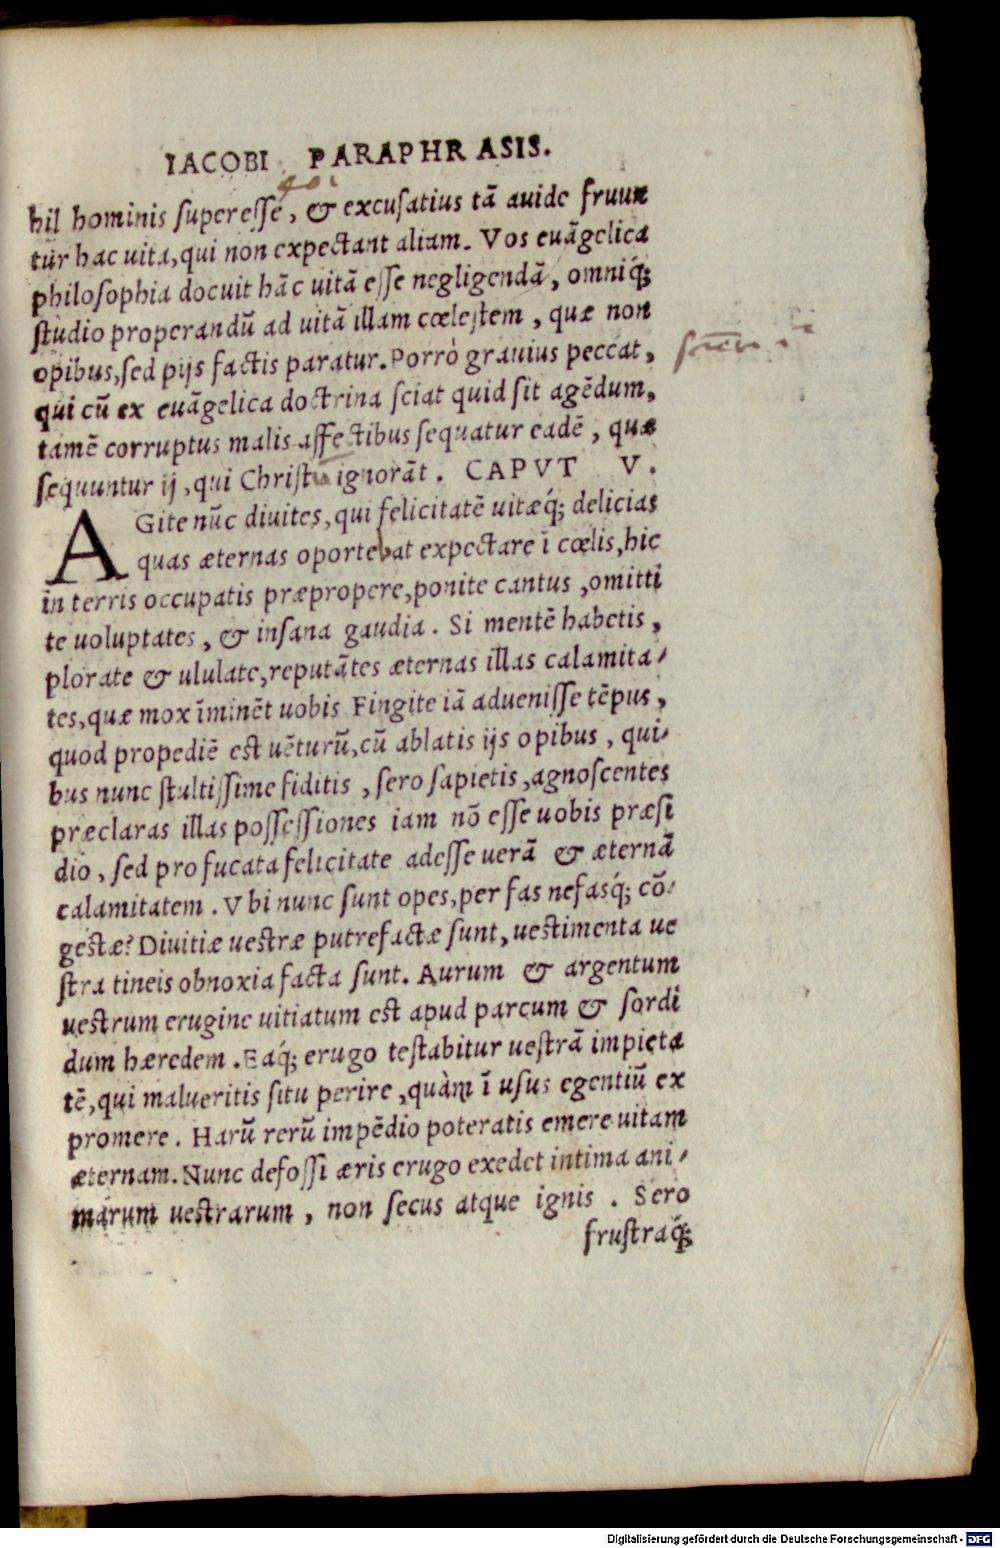 IACOBI PARAPHRASIS.
hil hominis superesse, & excusatius tā auide fruun
tur hac uita, qui non expectant aliam. Vos euāgelica
philosophia docuit hāc uitā esse negligendā, omniq́;
studio properandū ad uitā illam cœlestem, quæ non
opibus, sed pijs factis paratur. Porrò grauius peccat,
qui cū ex euāgelica doctrina sciat quid sit agēdum,
tamē corruptus malis affectibus sequatur eadē, quæ
sequuntur ij, qui Christū ignorāt. CAPVT V.
AGite nūc diuites, qui felicitatē uitæq́; delicias
quas æternas oportebat expectare ī cœlis, hic
in terris occupatis præpropere, ponite cantus, omitti
te uoluptates, & insana gaudia. Si mentē habetis,
plorate & ululate, reputātes æternas illas calamita-
tes, quæ mox īminēt uobis Fingite iā aduenisse tēpus,
quod propediē est uēturū, cū ablatis ijs opibus, qui-
bus nunc stultissime fiditis, sero sapietis, agnoscentes
præclaras illas possessiones iam nō esse uobis præsi
dio, sed pro fucata felicitate adesse uerā & æternā
calamitatem. Vbi nunc sunt opes, per fas nefasq́; cō-
gestæ? Diuitiæ uestræ putrefactæ sunt, uestimenta ue
stra tineis obnoxia facta sunt. Aurum & argentum
uestrum erugine uitiatum est apud parcum & sordi
dum hæredem. Eaq́; erugo testabitur uestrā impieta
tē, qui malueritis situ perire, quàm ī usus egentiū ex
promere. Harū rerū impēdio poteratis emere uitam
æternam. Nunc defossi æris erugo exedet intima ani-
marum uestrarum, non secus atque ignis. Sero
frustraq́;
Digitalisierung gefördert durch die Deutsche Forschungsgemeinschaft - DFG